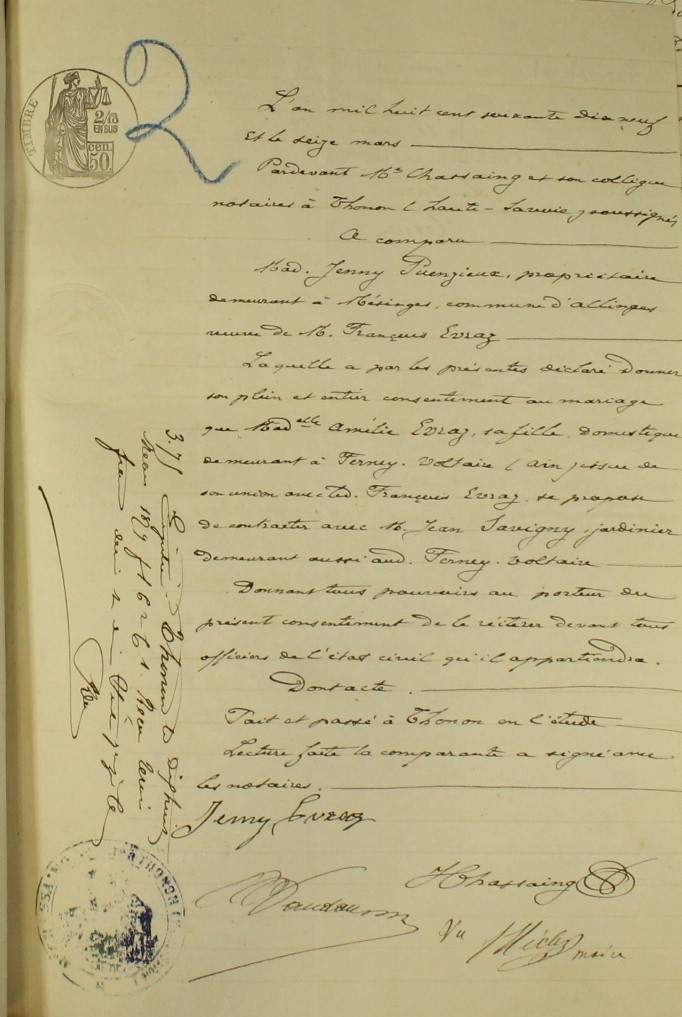 TIMBRE
2/10
EN SUS
50 cen.
2
L'an mil huit cent soixante dix neuf
Et le seize mars
Pardevant Me Chassaing et son collègue
notaires à Thonon (Haute-Savoie) soussignés
A comparu
Mad. Jenny Puenzieux, propriétaire
demeurant à Mésinges, commune d'Allinges
veuve de M. François Evraz
Laquelle a par les présentes déclaré Donner
son plein et entier consentement au mariage
que Madelle Amélie Evraz, sa fille, Domestique
demeurant à Ferney-Voltaire (Ain) issue de
son union avec led. François Evraz, se propose
de contracter avec M. Jean Savigny, jardinier
Demeurant aussi aud. Ferney-Voltaire
Donnant tous pouvoirs au porteur du
présent consentement de le réitérer devant tous
officiers de l'état civil qu'il appartiendra.
Dont acte.
Fait et passé à Thonon en l'étude
Lecture faite la comparante a signé avec
les notaires.
Jenny Evraz
HChassaing
Vu
maire
Thonon le dix huit
mars 1879
THONON